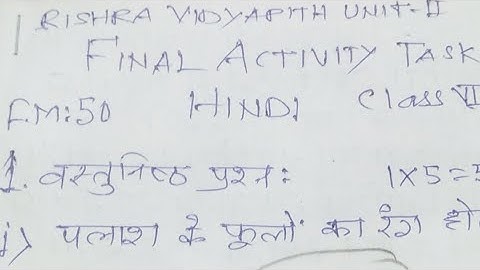 RISHRA VIDYAPITH UNIT-II
FINAL ACTIVITY TASK
F.M:50 HINDI Class VI
1. वस्तुनिष्ठ प्रश्न: 1X5=5
i) पलाश के फूलों का रंग